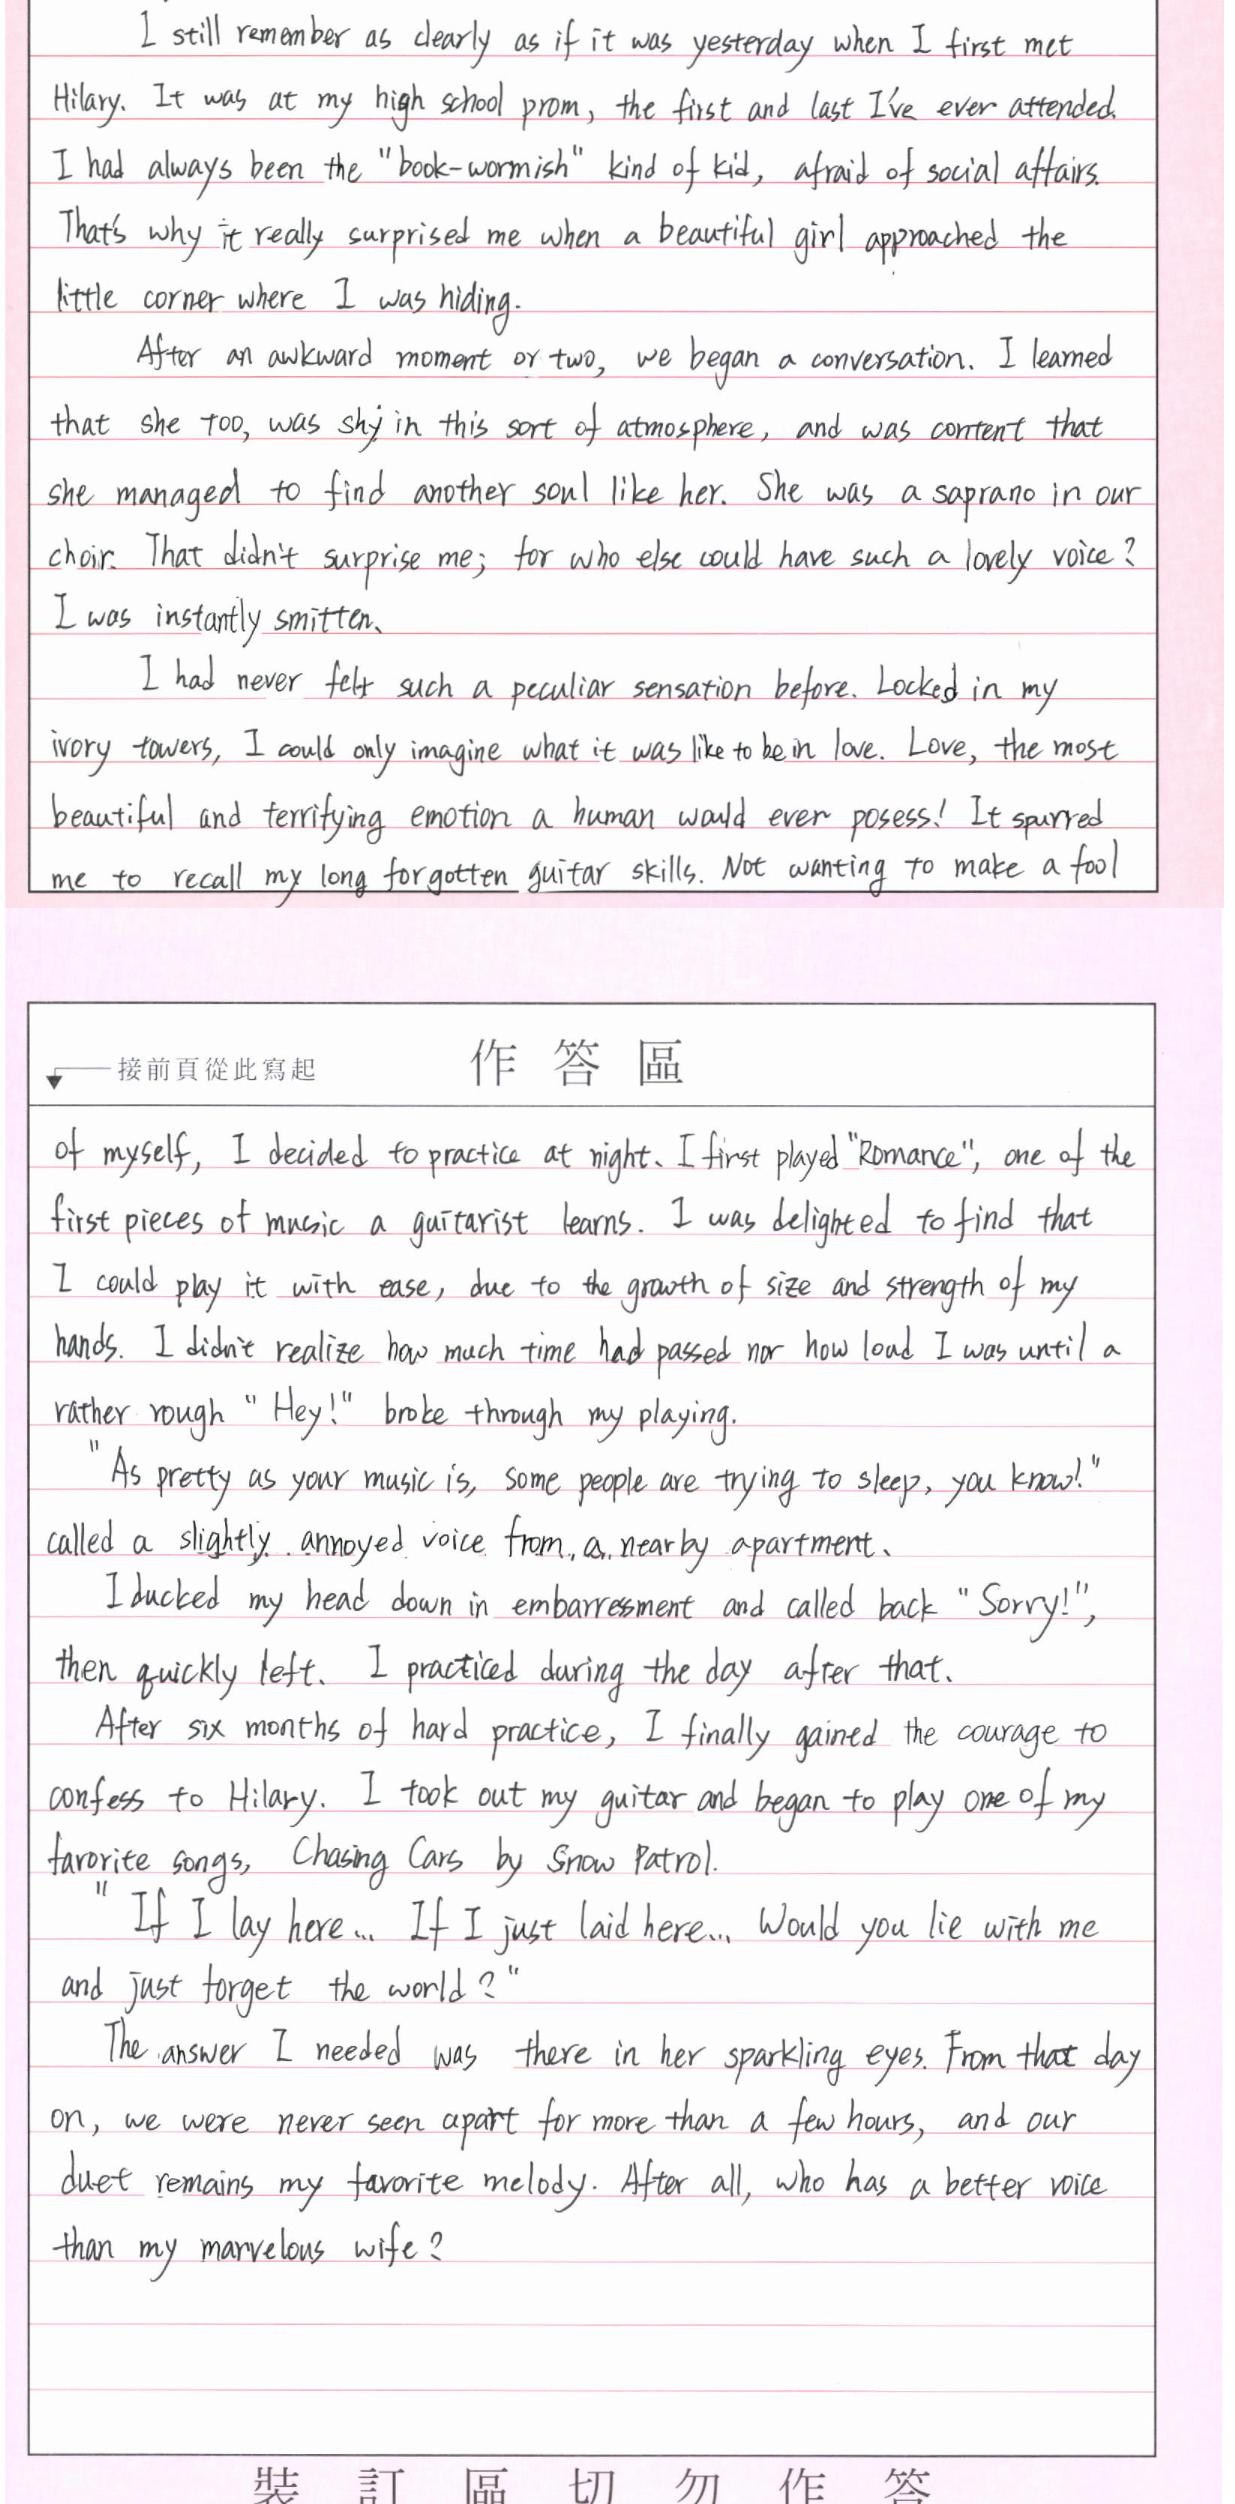 I still remember as clearly as if it was yesterday when I first met
Hilary. It was at my high school prom, the first and last I've ever attended.
I had always been the "book-wormish" kind of kid, afraid of social affairs.
That's why it really surprised me when a beautiful girl approached the
little corner where I was hiding.
After an awkward moment or two, we began a conversation. I learned
that she too, was shy in this sort of atmosphere, and was content that
she managed to find another soul like her. She was a saprano in our
choir. That didn't surprise me; for who else could have such a lovely voice?
I was instantly smitten.
I had never felt such a peculiar sensation before. Locked in my
ivory towers, I could only imagine what it was like to be in love. Love, the most
beautiful and terrifying emotion a human would ever posess! It spurred
me to recall my long forgotten guitar skills. Not wanting to make a fool
作答區
接前頁從此寫起
of myself, I decided to practice at night. I first played "Romance", one of the
first pieces of music a guitarist learns. I was delighted to find that
I could play it with ease, due to the growth of size and strength of my
hands. I didn't realize how much time had passed nor how loud I was until a
rather rough "Hey!" broke through my playing.
"As pretty as your music is, some people are trying to sleep, you know!"
called a slightly annoyed voice from a nearby apartment.
I ducked my head down in embarresment and called back "Sorry!",
then quickly left. I practiced during the day after that.
After six months of hard practice, I finally gained the courage to
confess to Hilary. I took out my guitar and began to play one of my
favorite songs, Chasing Cars by Snow Patrol.
"If I lay here... If I just laid here... Would you lie with me
and just forget the world?"
The answer I needed was there in her sparkling eyes. From that day
on, we were never seen apart for more than a few hours, and our
duet remains my favorite melody. After all, who has a better voice
than my marvelous wife?
裝訂區切勿作答